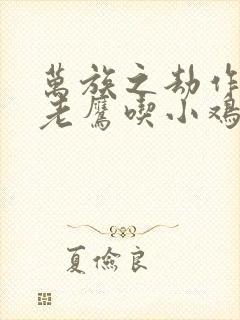 萬族之劫作
老鷹喫小雞
夏儉良